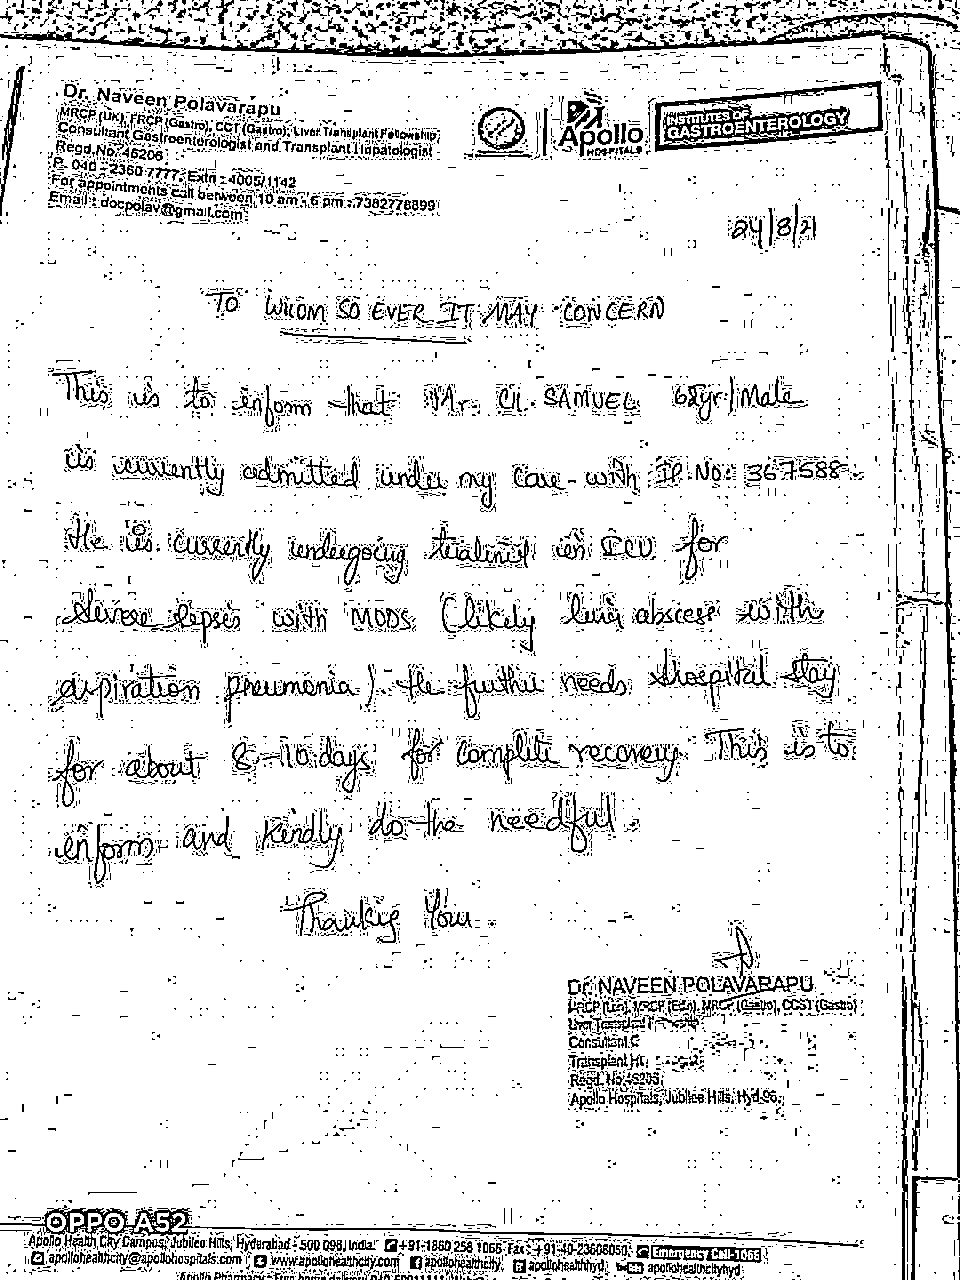 Dr. Naveen Polavarapu
MRCP (UK), FRCP (Gastro), CCT (Gastro), Liver Transplant Fellowship
Consultant Gastroenterologist and Transplant Hepatologist
Regd.No: 46206
P: 040 - 2360 7777, Extn : 4005/1142
For appointments call between 10 am - 6 pm : 7382778899
Email : docpolav@gmail.com
Apollo
HOSPITALS
INSTITUTES OF
GASTROENTEROLOGY
24/8/21
TO WHOM SO EVER IT MAY CONCERN
This is to inform that Mr. CH. SAMUEL 68yr/Male
is currently admitted under my care with IP.NO: 367588.
He is currently undergoing treatment in ICU for
severe sepsis with MODS (likely liver abscess with
aspiration pneumonia). He further needs hospital stay
for about 8-10 days for complete recovery. This is to
inform and kindly do the needful.
Thanking You.
Dr. NAVEEN POLAVARAPU
MRCP (Lon), MRCP (Edin), MRCP (Gastro), CCST (Gastro)
Liver Transplant
Consultant
Transplant
Regd. No.46206
Apollo Hospitals, Jubilee Hills, Hyd-96.
OPPO A52
Apollo Health City Campus, Jubilee Hills, Hyderabad - 500 096, India. +91-1860 258 1066 Fax : +91-40-23608050 Emergency Call-1066
apollohealthcity@apollohospitals.com www.apollohealthcity.com apollohealthcity apollohealthhyd apollohealthcityhyd